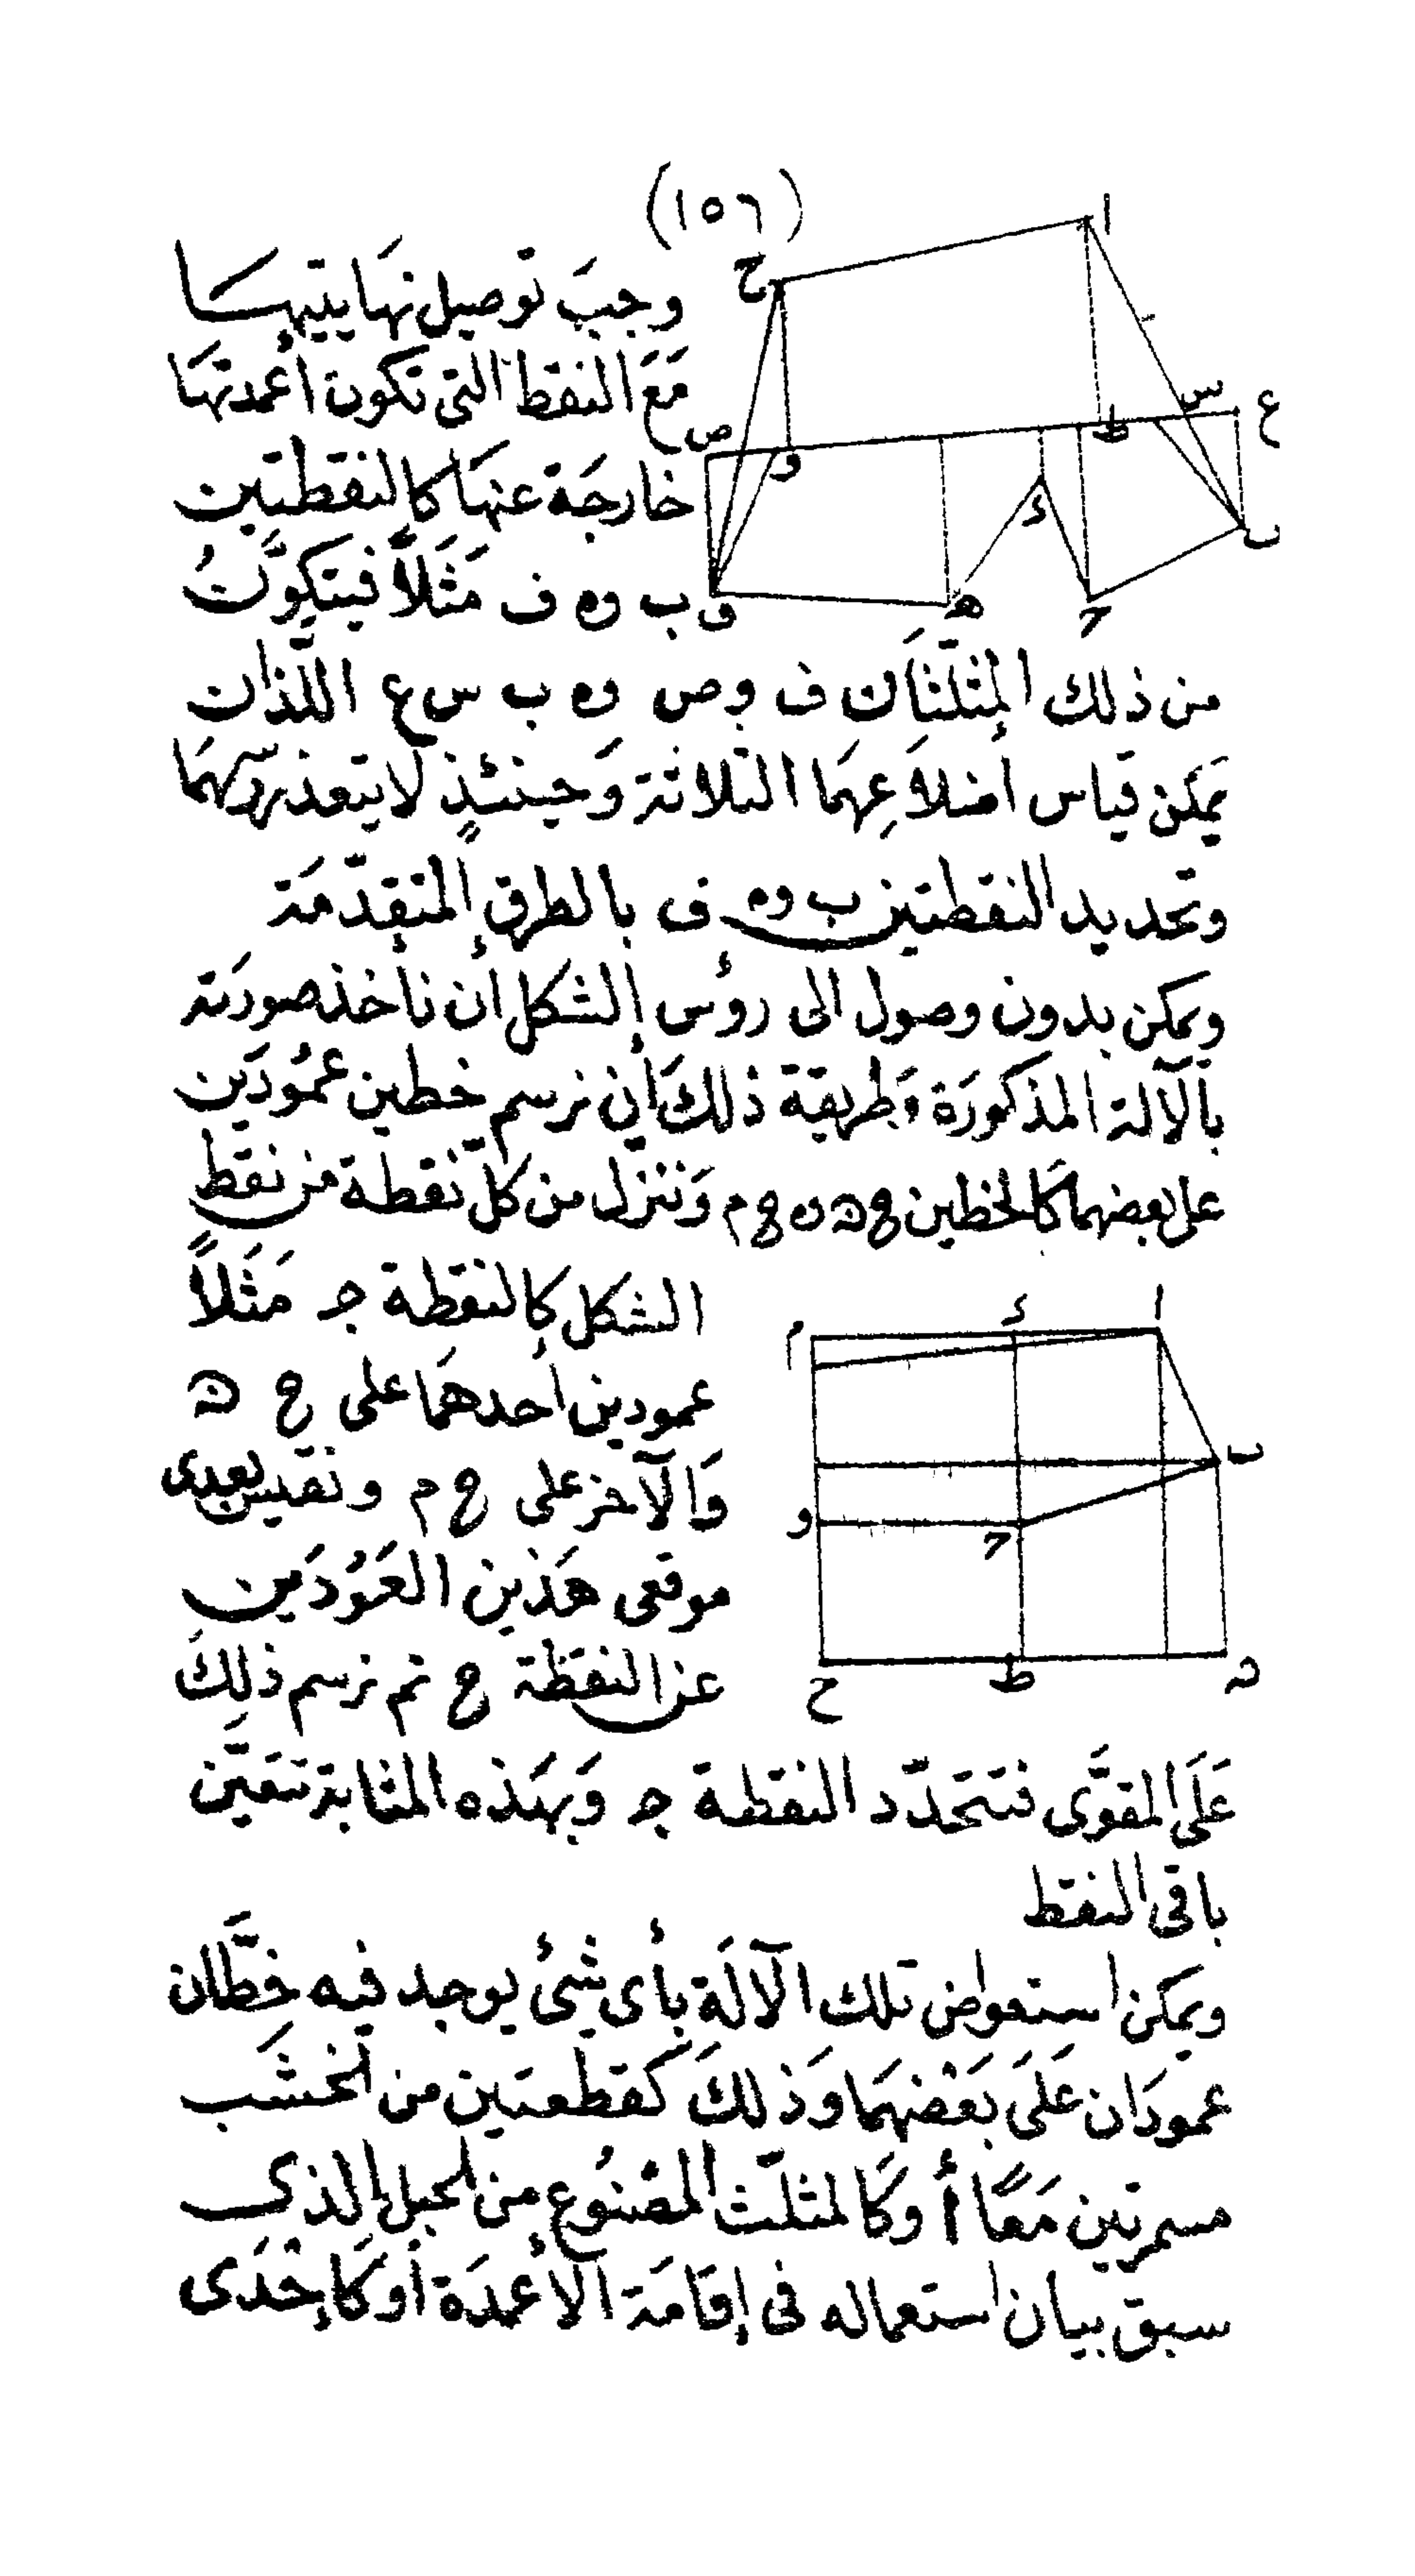 (١٥٦)
وجبَ توصيل نهَايتيهما
مَعَ النقط التى تكون أعمدتهَا
خارجَة عنهَا كالنقطتين
ب وه ف مَثَلاً فيتكوَّنُ
ا
ح
س
ع
ط
ص
و
ء
ب
ف
ه
ح
من ذلك المثلّثَان ف وص وه ب س ع اللّذان
يمَكن قياس أضلاَعِهمَا الثلاثة وَحينئذٍ لايتعذر رسمهمَا
وتحديد النقطتين ب وه ف بالطرق المتقدّمَة
ويمكن بدون وصول الى رؤس الشكل أن نأخذ صورَته
بالآلة المذكورَة وَطريقة ذلكَ أن نرسم خطين عمُودَين
على بعضهما كَالخطين ح ن وه ح م وَننزّل من كلّ نقطة من نقط
الشكل كالنقطة جـ مَثَلاً
عمودين أحدهمَا على ح ن
وَالآخر على ح م ونقيس بعدى
موقعى هَذين العَمُودَين
عن النقطة ح ثم نرسم ذلِكَ
ا
ء
م
ب
و
ح
ط
ح
ن
عَلَى المقوَّى فتتحَدّد النقطة جـ وَبهَذه المثابة تتعَيَّن
باقى النقط
ويمكن استعواض تلك الآلَة بأى شئ يوجد فيه خطَّان
عمودَان عَلَى بَعْضهمَا وَذلكَ كقطعتَين من الخشَب
مسمرتين مَعًا أوكَالمثلّث المصْنُوع من الحبل الذى
سبق بيان استعماله فى إقَامَة الأعمدَة أوكَإحْدَى